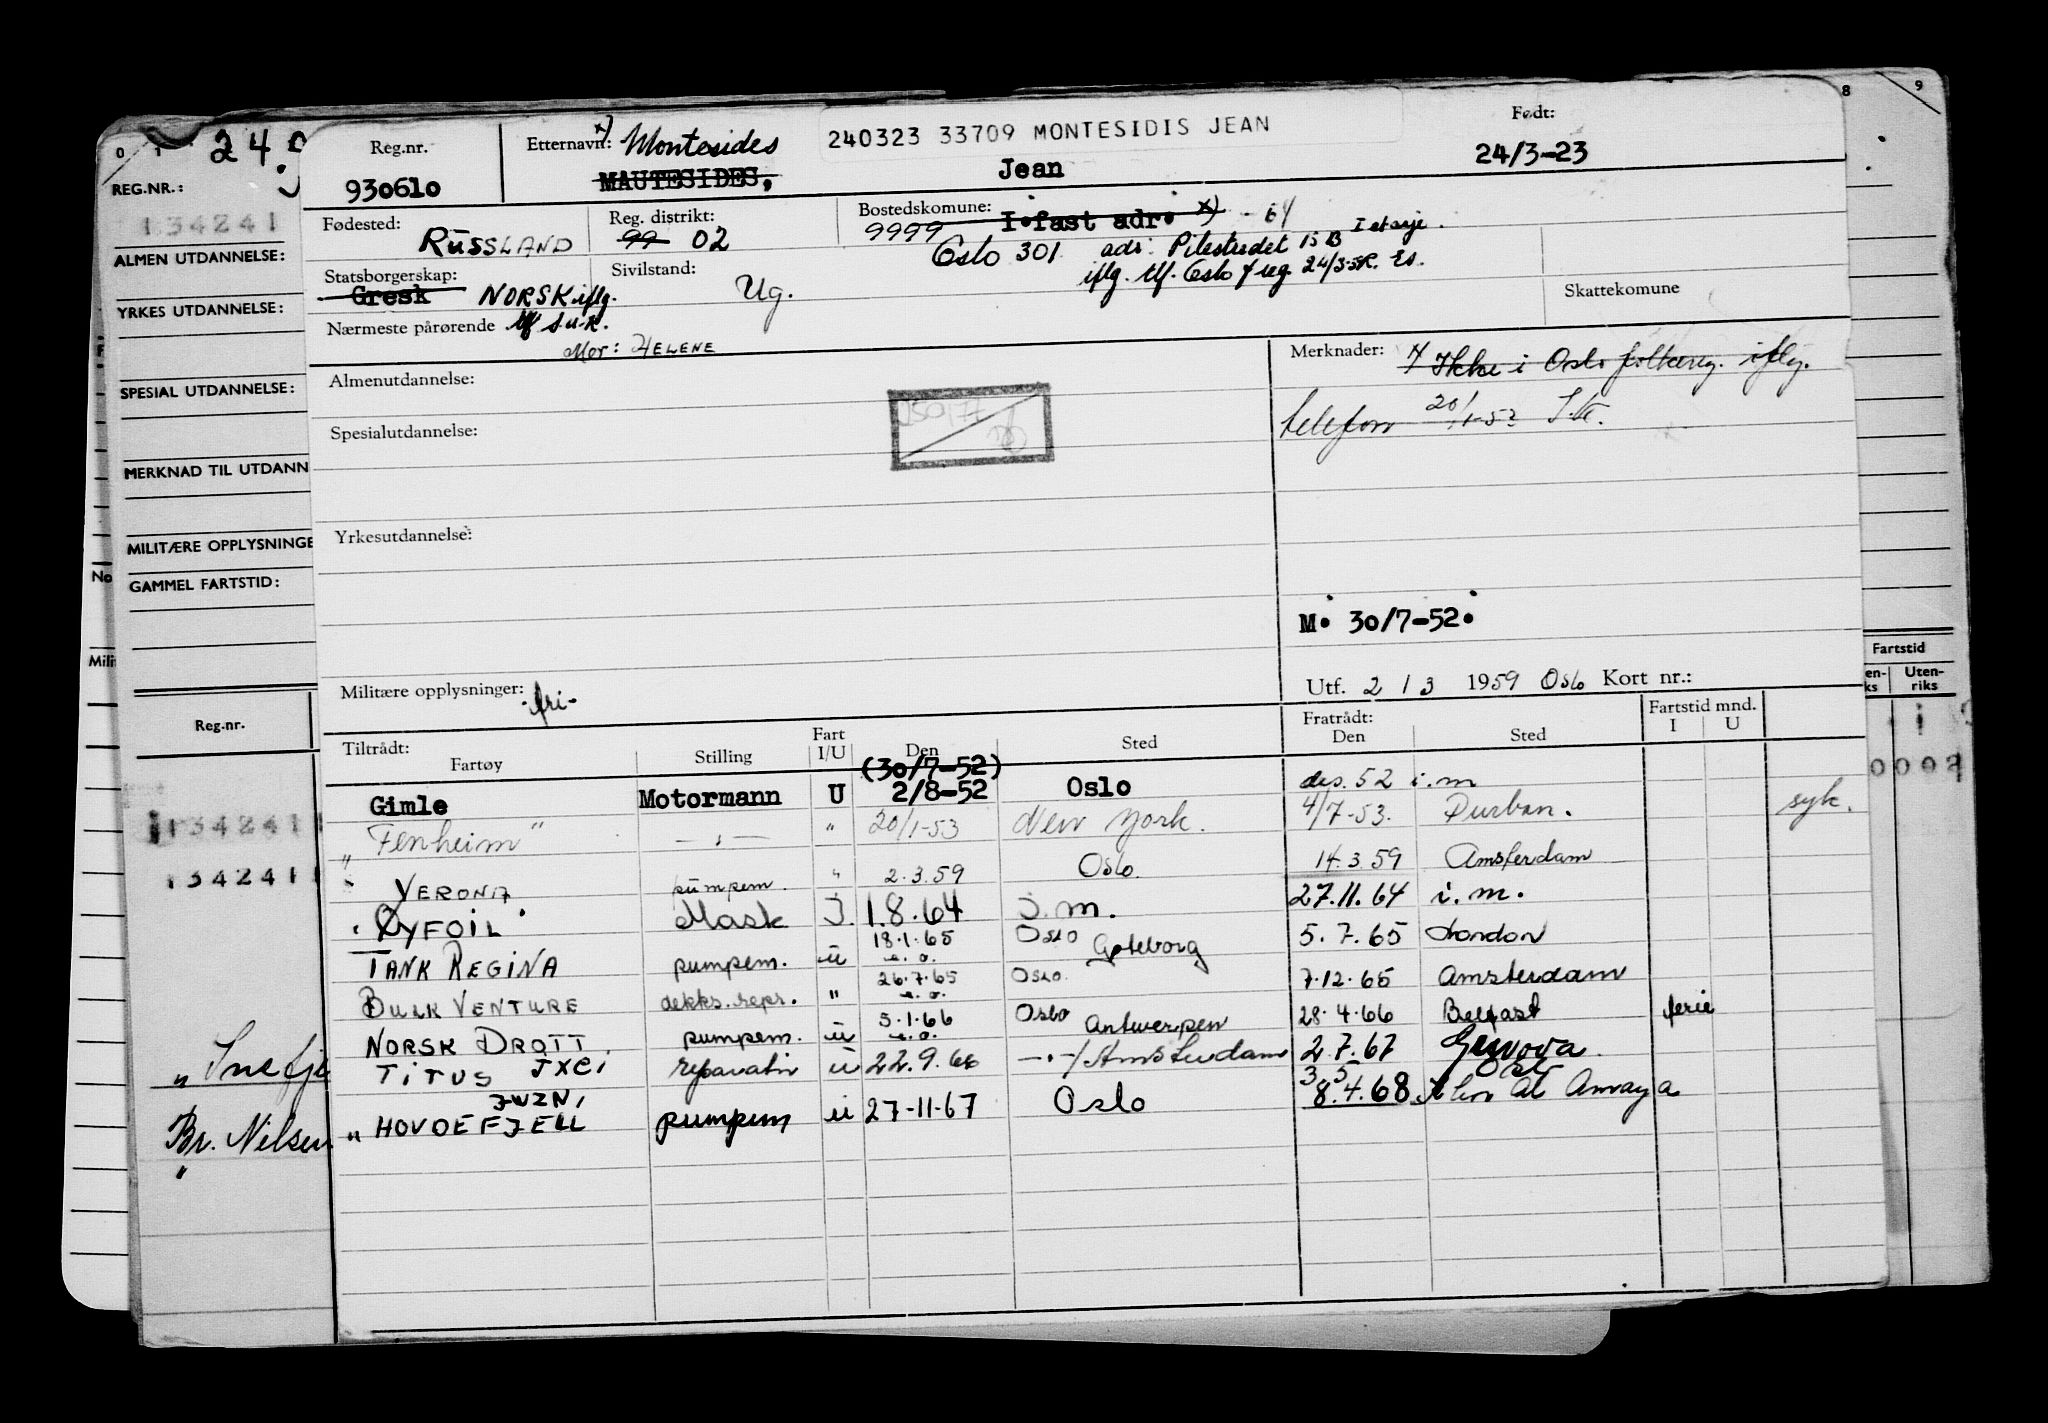 0 1 24
8 9
REG.NR.:
134241
ALMEN UTDANNELSE:
YRKES UTDANNELSE:
SPESIAL UTDANNELSE:
MERKNAD TIL UTDANN
MILITÆRE OPPLYSNINGE
GAMMEL FARTSTID:
No
Mili
Reg.nr.
134241
134241
" Snefje
Br. Nilsen
"
Fartstid
en-
ks
Uten-
riks
0002
Reg.nr. Etternavn: x) Montesides 240323 33709 MONTESIDIS JEAN Født:
930610 MAUTESIDES, Jean 24/3-23
Fødested: RUSSLAND Reg. distrikt: 99 02 Bostedskomune: I.fast adr. x) - 64
9999 Oslo 301 adr: Pilestredet 15 B I etasje.
Statsborgerskap: Gresk NORSK iflg. Sivilstand: Ug. iflg. tlf. Oslo f reg. 24/3-58. Es.
Skattekomune
Nærmeste pårørende tlf S.u.K.
Mor: HELENE
Almenutdannelse:
Merknader: x) Ikke i Oslo folkereg. iflg.
telefon 20/1-53 I.K.
Spesialutdannelse:
Yrkesutdannelse:
M. 30/7-52.
Militære opplysninger: -fri-
Utf. 2 / 3 1959 Oslo Kort nr.:
Tiltrådt: Fartøy Stilling Fart I/U Den Sted Fratrådt: Den Sted Fartstid mnd. I U
(30/7-52)
Gimle Motormann U 2/8-52 Oslo des. 52 i.m
" Fenheim " — " — " 20/1-53 New York. 4/7-53. Durban. syk.
" VERONA pumpem. " 2.3.59 Oslo. 14.3.59 Amsterdam
" RYFOIL " Mask J. 1.8.64 J.m. 27.11.64 i.m.
TANK REGINA pumpem. ü 18.1.65 e.o. Oslo Gøteborg 5.7.65 London
BULK VENTURE dekks.repr. " 26.7.65 e.o. Oslo 7.12.65 Amsterdam
NORSK DROTT pumpem. ü 5.1.66 e.o. Oslo Antwerpen 28.4.66 Belfast ferie
TITUS JXCI reparatør ü 22.9.66 -"-/Amsterdam 2.7.67 Genova
" HOVDEFJELL JWZN, pumpem ü 27-11-67 Oslo 8.4.68 3 5 Oslo